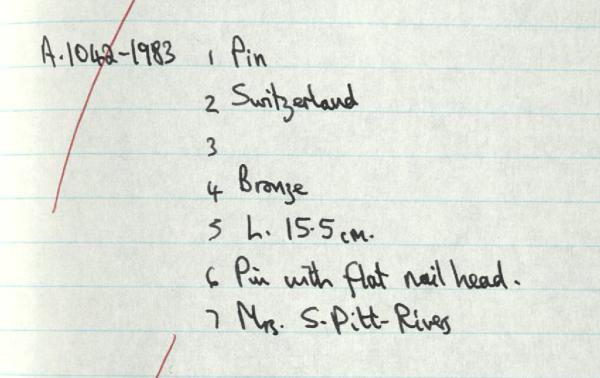 A.1042-1983 1 Pin
2 Switzerland
3
4 Bronze
5 L. 15.5 cm.
6 Pin with flat nail head.
7 Mrs. S. Pitt-Rivers